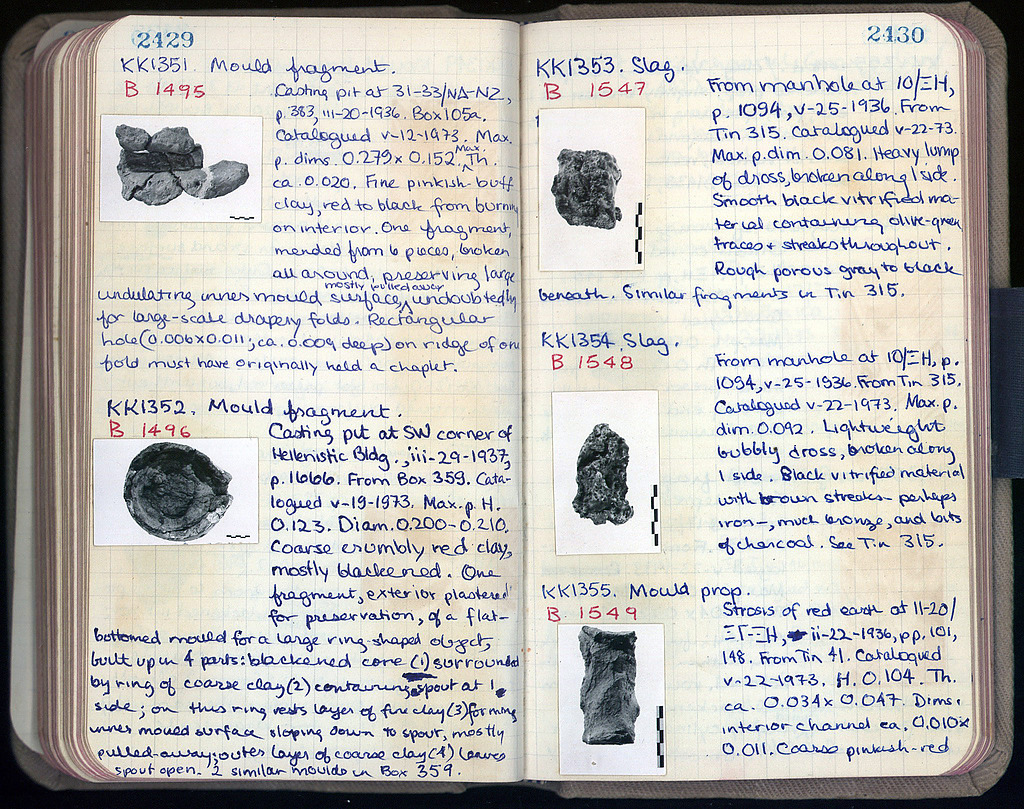 2429
KK1351. Mould fragment.
B 1495
Casting pit at 31-33/NA-NZ,
p. 383, iii-20-1936. Box 105a.
Catalogued v-12-1973. Max.
p. dims. 0.279 x 0.152. Max. Th.
ca. 0.020. Fine pinkish-buff
clay, red to black from burning
on interior. One fragment,
mended from 6 pieces, broken
all around, preserving large
undulating inner mould surface, mostly pulled away, undoubtedly
for large-scale drapery folds. Rectangular
hole (0.006 x 0.011; ca. 0.009 deep) on ridge of one
fold must have originally held a chaplet.
KK1352. Mould fragment.
B 1496
Casting pit at SW corner of
Hellenistic Bldg., iii-29-1937,
p. 1666. From Box 359. Cata-
logued v-19-1973. Max. p. H.
0.123. Diam. 0.200-0.210.
Coarse crumbly red clay,
mostly blackened. One
fragment, exterior plastered
for preservation, of a flat-
bottomed mould for a large ring-shaped object,
built up in 4 parts: blackened core (1) surrounded
by ring of coarse clay (2) containing spout at 1
side; on this ring rests layer of fine clay (3) forming
inner mould surface sloping down to spout, mostly
pulled away; outer layer of coarse clay (4) leaves
spout open. 2 similar moulds in Box 359.
2430
KK1353. Slag.
B 1547
From manhole at 10/ΞH,
p. 1094, v-25-1936. From
Tin 315. Catalogued v-22-73.
Max. p. dim. 0.081. Heavy lump
of dross, broken along 1 side.
Smooth black vitrified ma-
terial containing olive-green
traces + streaks throughout.
Rough porous gray to black
beneath. Similar fragments in Tin 315.
KK1354. Slag.
B 1548
From manhole at 10/ΞH, p.
1094, v-25-1936. From Tin 315.
Catalogued v-22-1973. Max. p.
dim. 0.092. Lightweight
bubbly dross, broken along
1 side. Black vitrified material
with brown streaks - perhaps
iron -, much bronze, and bits
of charcoal. See Tin 315.
KK1355. Mould prop.
B 1549
Strosis of red earth at 11-20/
ΞΓ-ΞH, ii-22-1936, pp. 101,
148. From Tin 41. Catalogued
v-22-1973. H. 0.104. Th.
ca. 0.034 x 0.047. Dims.
interior channel ca. 0.010 x
0.011. Coarse pinkish-red